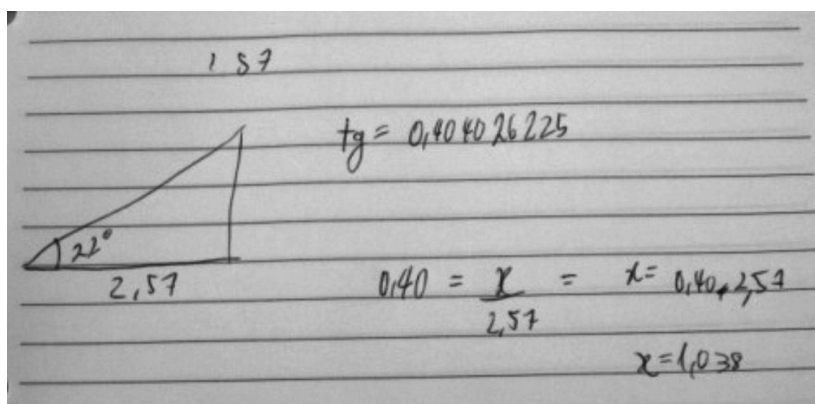 1 57
tg = 0,404026225
22°
2,57
0,40 = x/2,57 = x = 0,40 . 2,57
x = 1,038